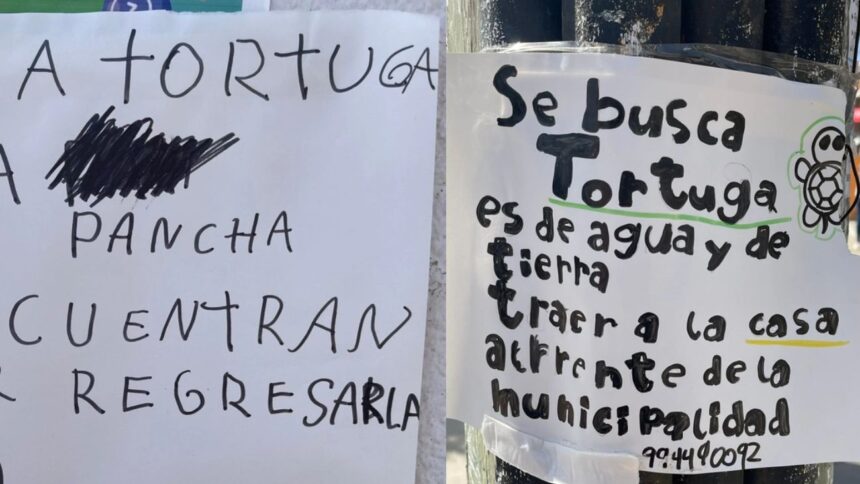 A TORTUGA
A
PANCHA
CUENTRAN
R REGRESARLA
Se busca
Tortuga
es de agua y de
tierra
traer a la casa
alfrente de la
municipalidad